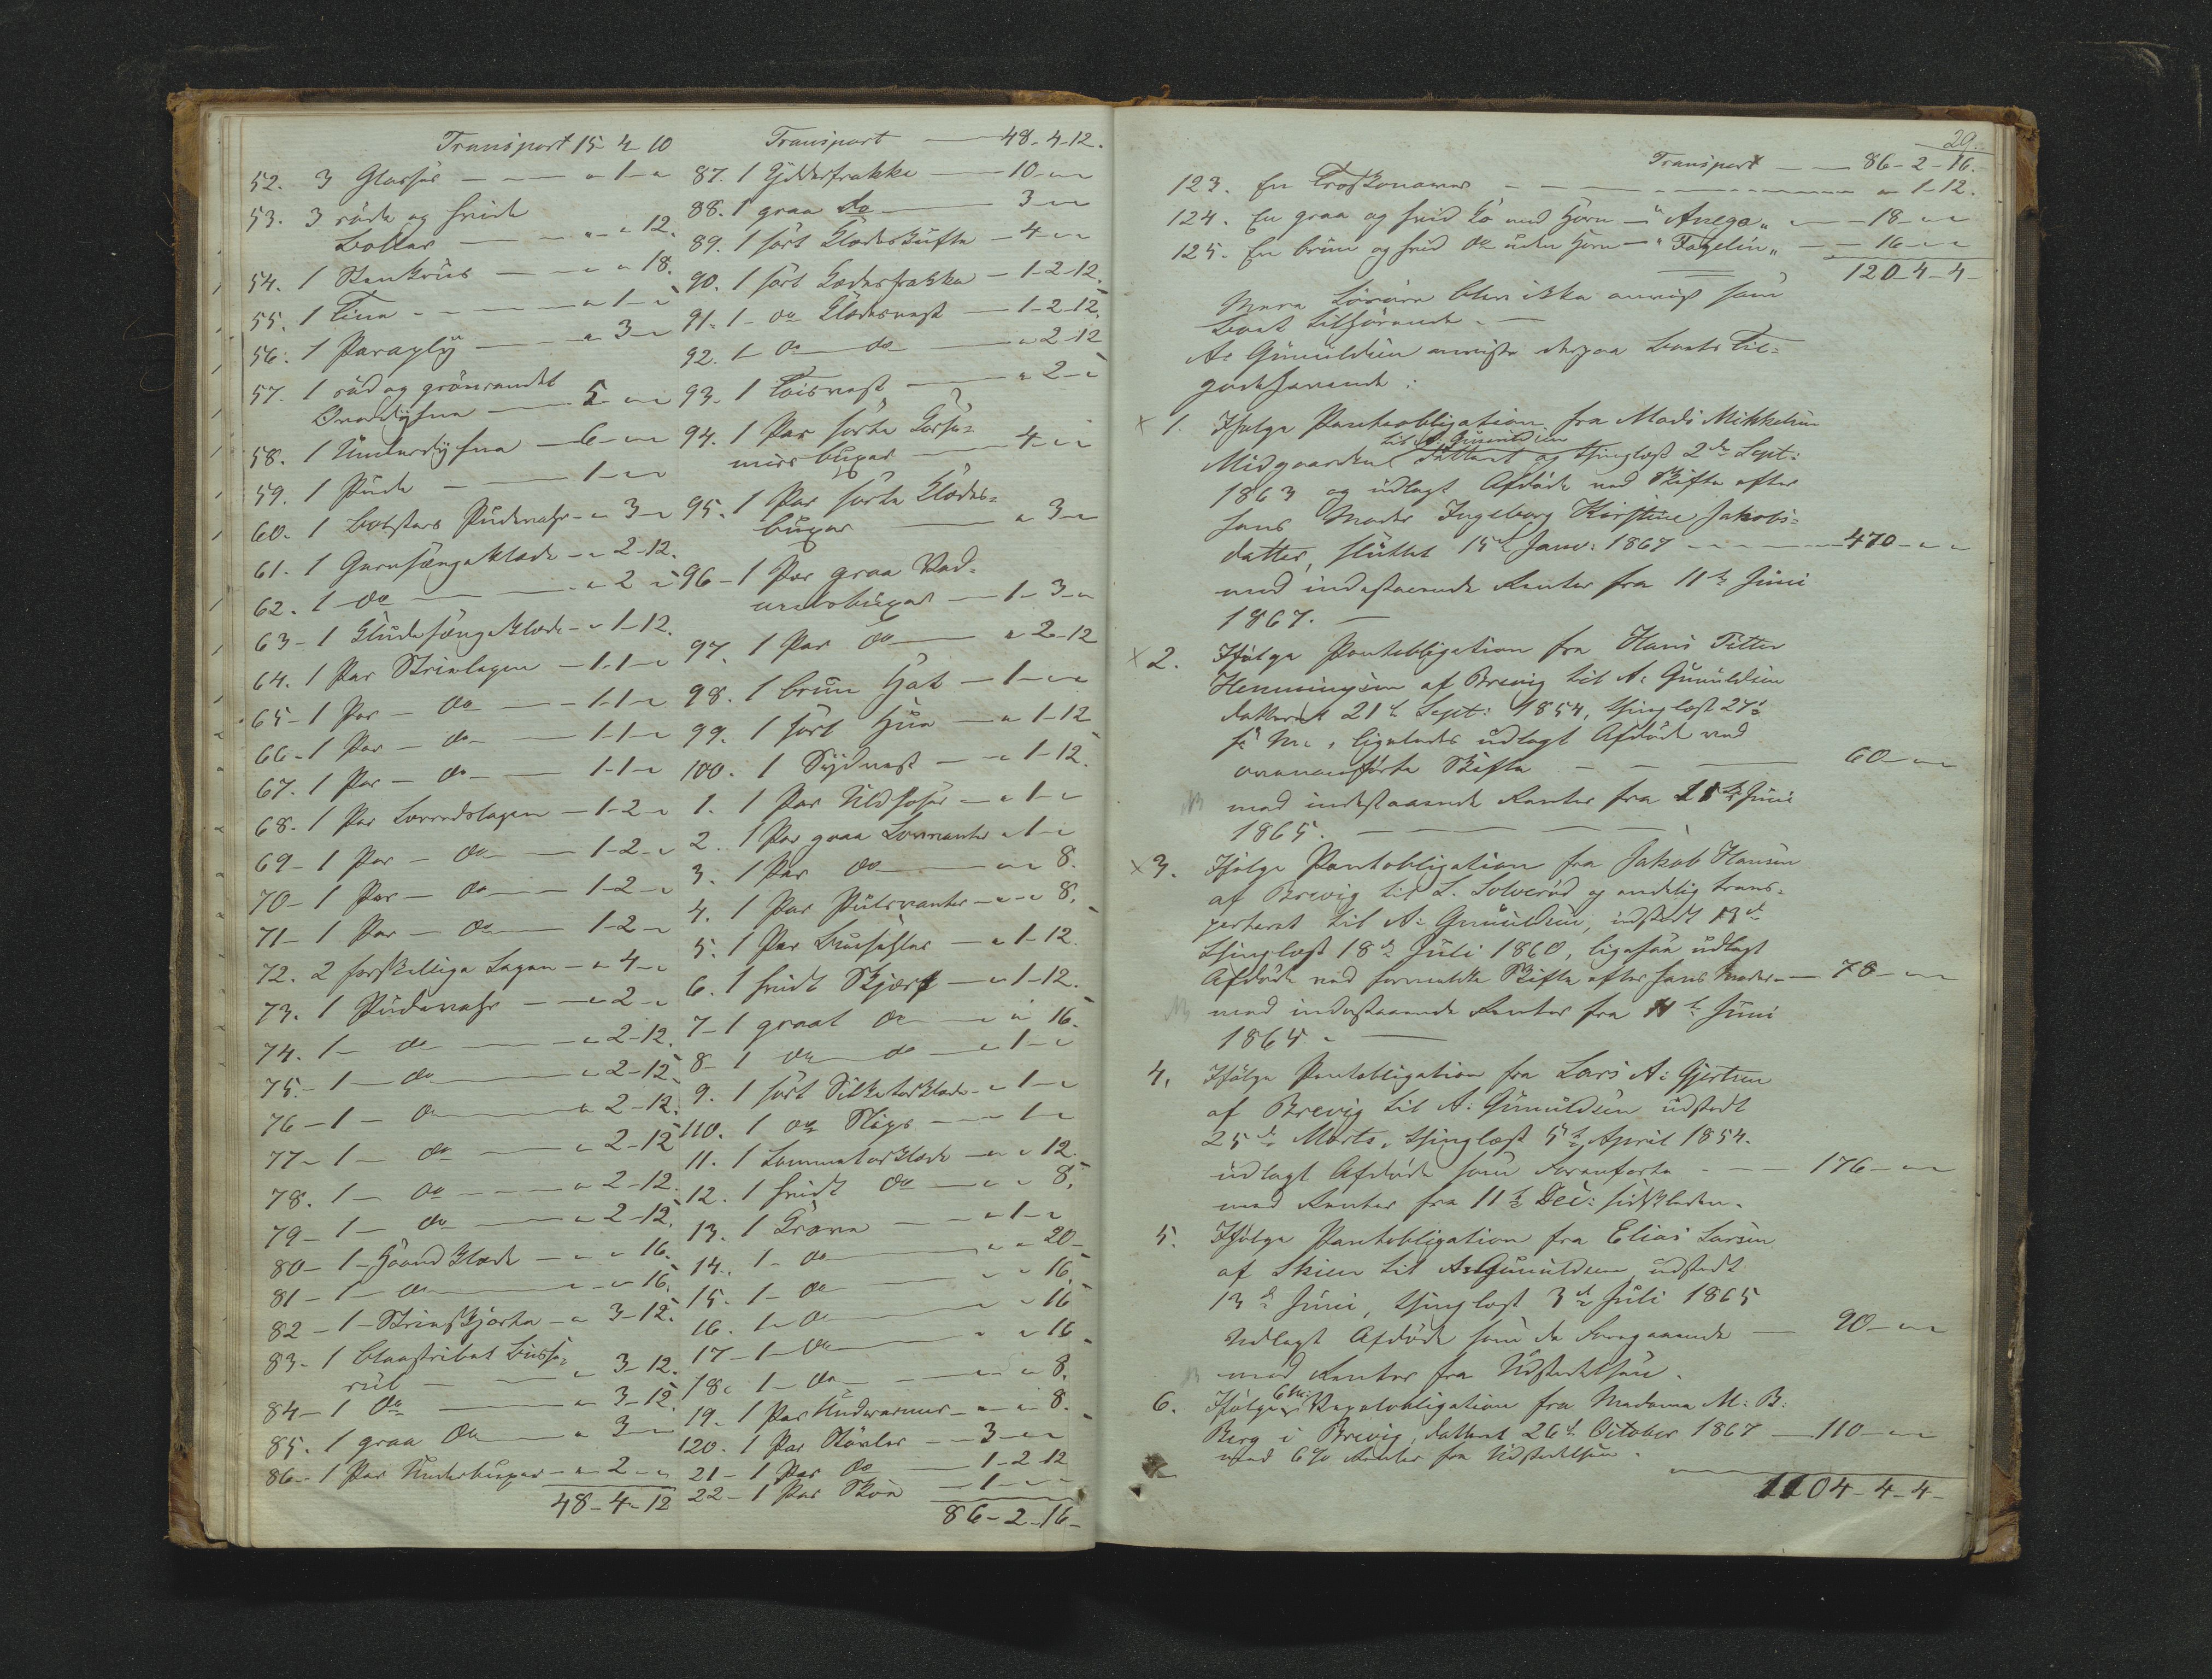 Transport 15 4 10
52. 3 Glasser — " 1 "
53. 3 röde og hvide
Boller — " " 12.
54. 1 Stenkrus — " " 18.
55. 1 Tine — " 1 "
56. 1 Paraply — " 3 "
57. 1 röd og grönrandet
Overdyhne — 5 " "
58. 1 Underdyhne — 6 " "
59. 1 Pude — 1 " "
60. 1 Bolsters Pudevahr — " 3 "
61. 1 Garnsængeklæde — " 2-12.
62. 1 do — " 2 "
63 - 1 Kludesængeklæde — " 1-12.
64. 1 Par Strielagen — 1-1 "
65 - 1 Par - do — 1-1 "
66 - 1 Par - do — 1-1 "
67. 1 Par - do — 1-1 "
68. 1 Par Lærredslagen — 1-2 "
69 - 1 Par - do — 1-2 "
70 - 1 Par - do — 1-2 "
71 - 1 Par - do — 1-2 "
72. 2 forskellige Lagen — " 4 "
73. 1 Pudevahr — " 2 "
74. 1 - do — " 2-12.
75. - 1 - do — " 2-12
76 - 1 - do — " 2-12.
77 - 1 - do — " 2-12
78. 1 - do — " 2-12.
79 - 1 - do — " 2-12.
80 - 1 - Haandklæde — " " 16.
81 - 1 - do — " " 16.
82 - 1 - Strieskjorte — " 3-12.
83 - 1 blaastribet Busse-
rul — " 3-12.
84 - 1 do — " 3-12.
85. 1 graa do — " 3 "
86 - 1 Par Underbuxer — " 2 "
48 - 4 - 12
Transport — 48-4-12.
87. 1 frakke — 10 " "
88. 1 graa do — 3 " "
89. 1 sort Klædeskufte — 4 " "
90. 1 sort Klædesfrakke — 1-2-12.
91. 1 - do Klædesvest — 1-2-12.
92. 1 - do - do — " 2-12
93. 1 Töisvest — " 2 "
94. 1 Par sorte
buxer — 4 " "
95. 1 Par sorte Klædes-
buxer — " 3 "
96 - 1 Par graa Vad-
melsbuxer — 1-3 "
97. 1 Par do — " 2-12
98. 1 brun Hat — 1 " "
99. 1 sort Hue — " 1-12
100. 1 Sydvest — " 1-12.
1. 1 Par Uldhoser — " 1 "
2. 1 Par graa Lovvanter " 1 "
3. 1 Par do — " " 8.
4. 1 Par Pulsvanter — " " 8.
5. 1 Par — " 1-12.
6. 1 hvidt Skjærf — " 1-12.
7 - 1 graat do — " " 16.
8 - 1 do do — " 1 "
9. 1 sort Silketorklæde — " 1 "
110. 1 do Slips — " 1 "
11. 1 Lommetorklæde — " " 12.
12. 1 hvidt do — " " 8.
13. 1 Krave — " 1 "
14. 1 - do — " " 20
15. 1 - do — " " 16.
16. 1 - do — " " 16
17 - 1 - do — " " 16
18. 1 - do — " " 8.
19. 1 Par — " " 8.
120. 1 Par Stövler — 3 " "
21 - 1 Par do — 1-2 12
22 - 1 Par Skoe — 1 " "
86 - 2 - 16 -
29.
Transport — 86-2-16.
123. En — " 1-12.
124. En graa og hvid Ko med Horn — " " — 18 " "
125. En brun og hvid do uden Horn — " Fagelin " — 16 " "
120-4-4-
Mere Lösöre blev ikke anvist som
Boet tilhörende. —
A: Gunuldsen anviste derpaa Boets Til-
godehavende:
× 1. Ifolge Pantobligation fra Mads Mikkelsen
til A. Gunuldsen
Midgaarden datteret og thinglæst 2de Sept:
1863 og udlagt Afdöde ved Skifte efter
hans Moder Ingeborg Kirstine Jakobs-
datter, sluttet 15de Janv: 1867 — 470 " "
med indestaaende Renter fra 11te Juni
1867. —
× 2. Ifölge Pantobligation fra Hans Titter
Henningsen af Brevig til A: Gunuldsen
datteret 21de Sept: 1854, thinglæst 27de
s: M:, ligeledes udlagt Afdöde ved
ovenanförte Skifte — 60 " "
NB med indestaaende Renter fra 11te Juni
1865. —
× 3. Ifölge Pantobligation fra Jakob Hansen
af Brevig til L. Solveröd og endelig trans-
porteret til A: Gunuldsen, udstedt 13de
thinglæst 18de Juli 1860, ligesaa udlagt
Afdöde ved formeldte Skifte efter hans Moder — 78 " "
NB med indestaaende Renter fra 11te Juni
1864. —
4. Ifölge Pantobligation fra Lars A: Gjertsen
af Brevig til A: Gunuldsen udstedt
25de Marts, thinglæst 5te April 1854.
udlagt Afdöde som Foranförte — 176 " "
med Renter fra 11te Dec: sidstleden.
5. Ifölge Pantobligation fra Elias Larsen
af Skien til A: Gunuldsen udstedt
13de Juni, thinglæst 3de Juli 1865
Udlagt Afdöde som de Foregaaende — 90 " "
NB med Renter fra Udstedelsen.
6. Ifölge Obligation fra Madame M: B:
Berg i Brevig, datteret 26de October 1867 — 110 " "
med 6% Renter fra Udstedelsen.
1104-4-4-